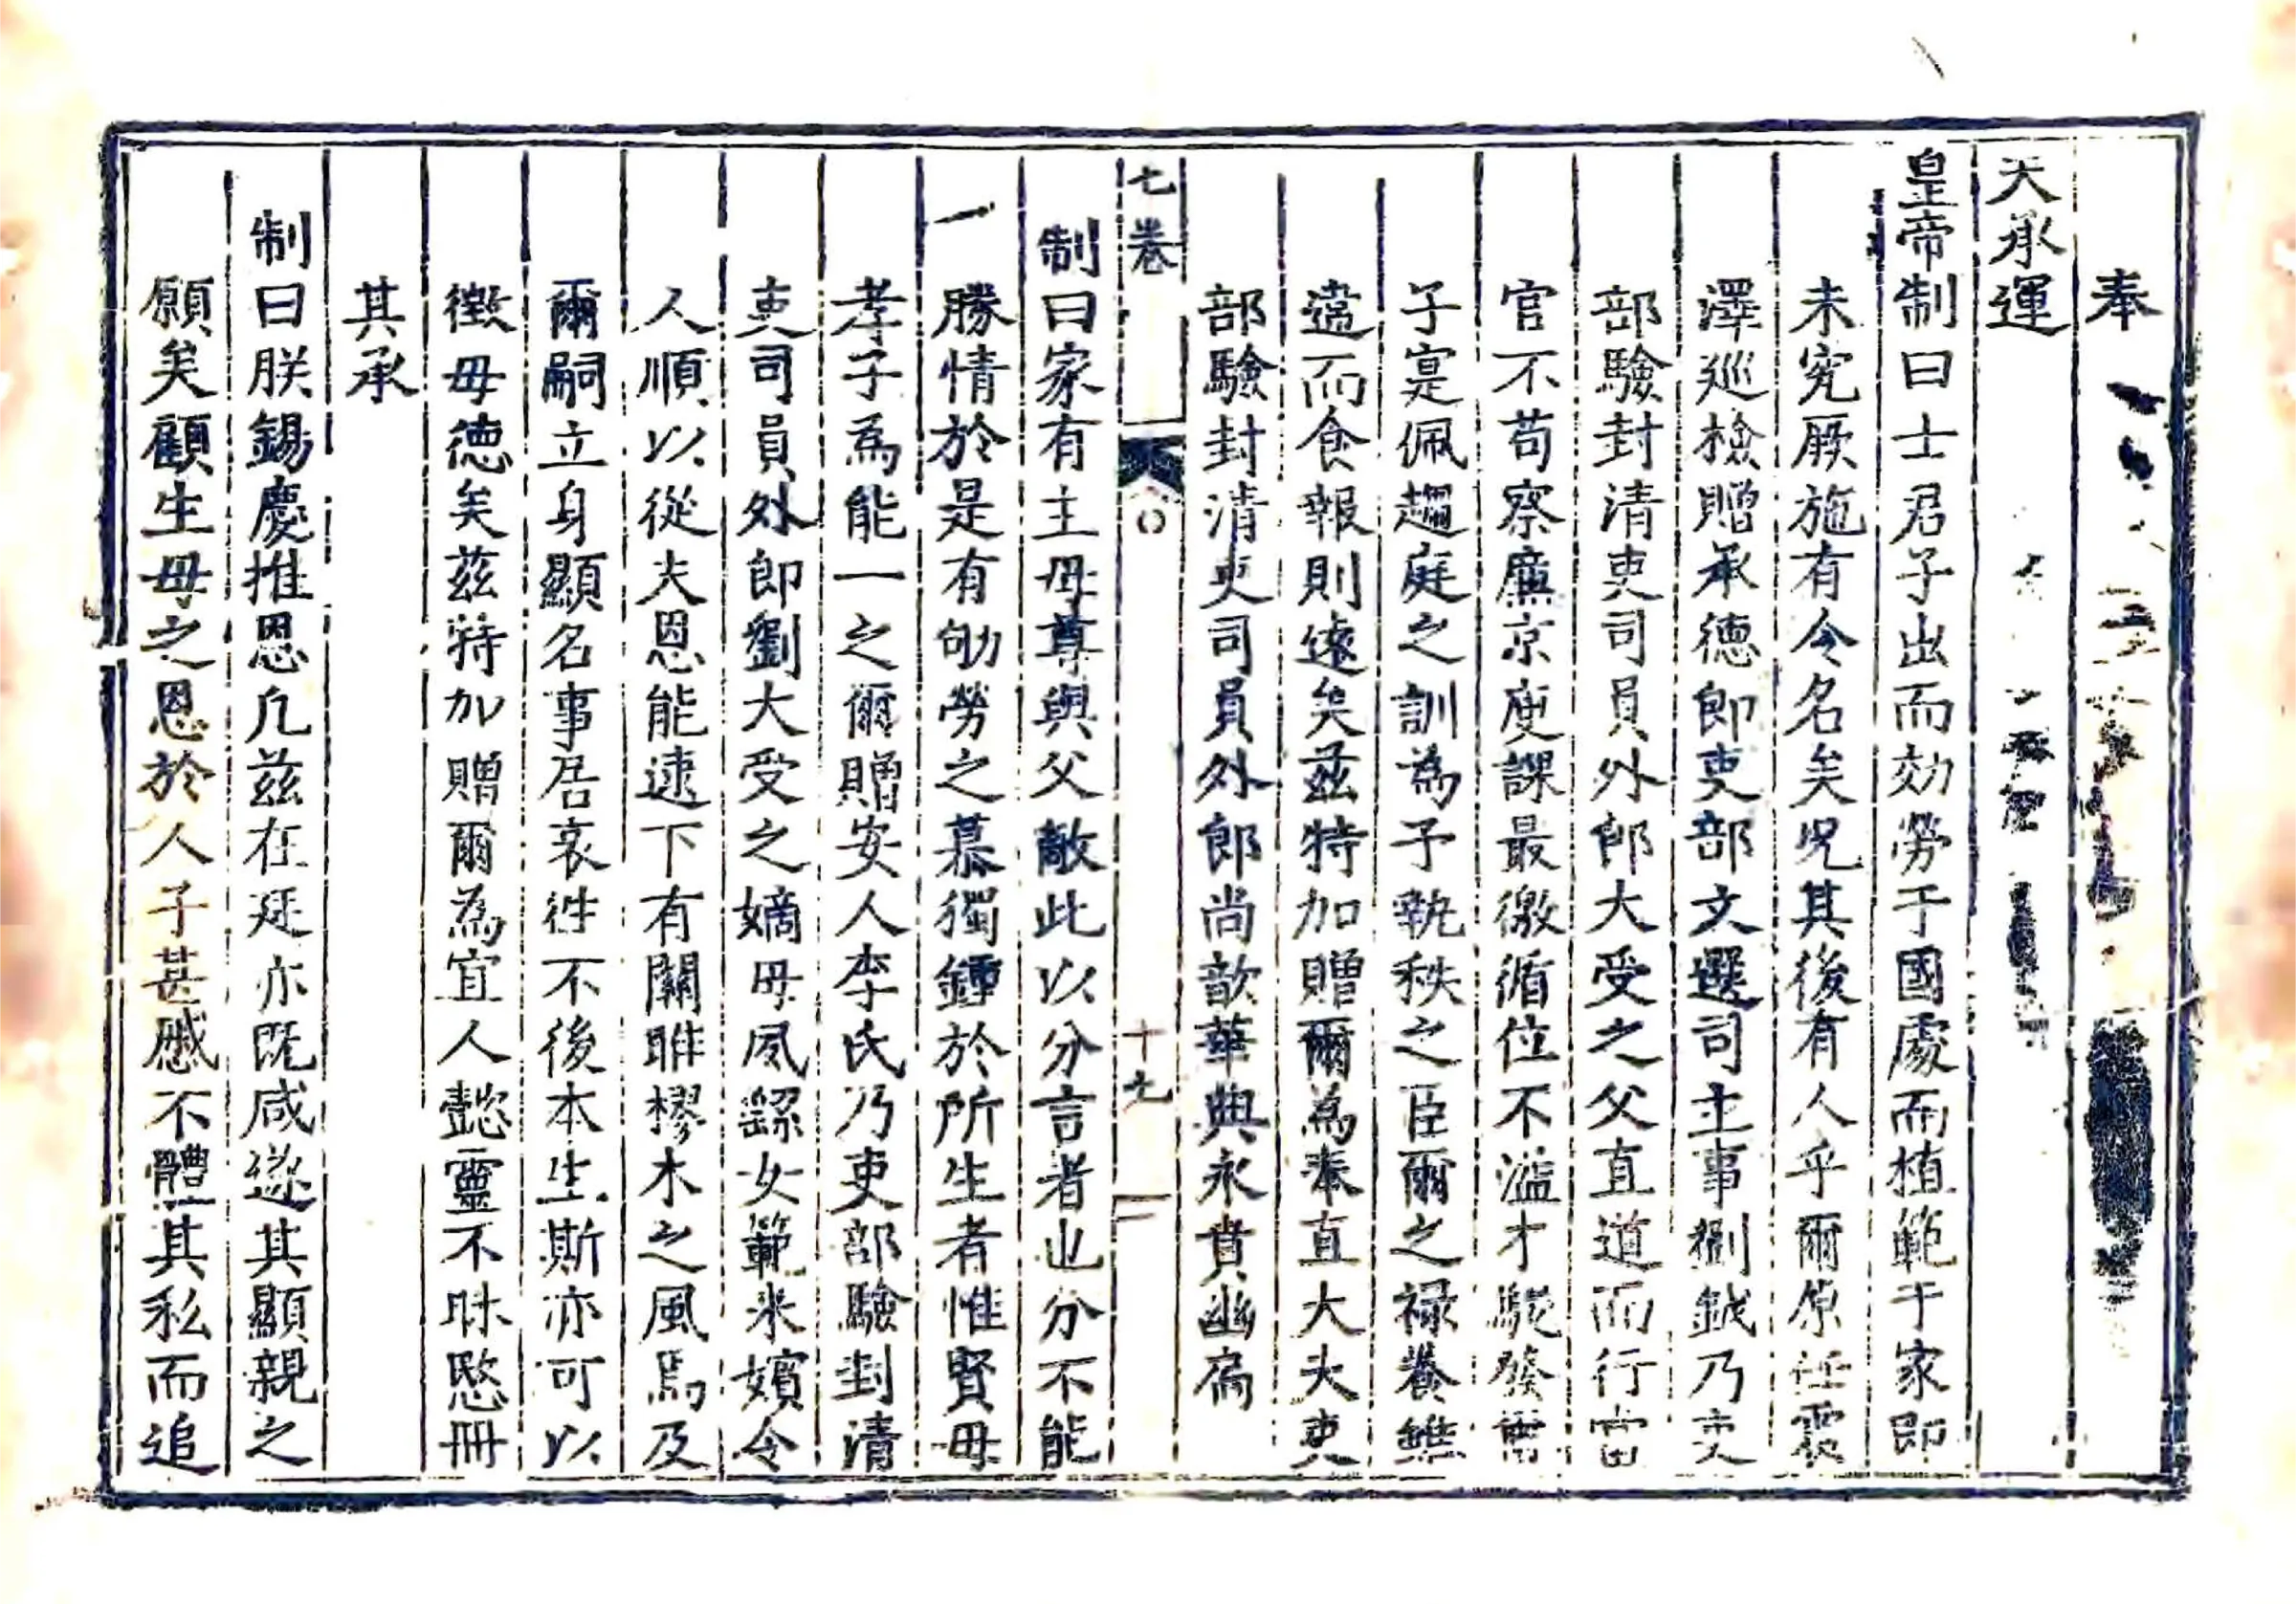 奉
天承運
皇帝制曰士君子出而効勞于國處而植範于家即
未究厥施有令名矣況其後有人乎爾原任震
澤巡檢贈承德郎吏部文選司主事劉鉞乃吏
部驗封清吏司員外郎大受之父直道而行當
官不苟察廉京庾課最徼循位不滿才駝發
子寔佩趨庭之訓為予執秩之臣爾之祿養雖
遑而食報則遠矣茲特加贈爾為奉直大夫吏
部驗封清吏司員外郎尚歆華典永賁幽扃
七卷
十九
制曰家有主母尊與父敵此以分言者也分不能
勝情於是有劬勞之慕獨鍾於所生者惟賢母
孝子為能一之爾贈安人李氏乃吏部驗封清
吏司員外郎劉大受之嫡母夙嫺女範來嬪令
人順以從夫恩能逮下有關雎樛木之風焉及
爾嗣立身顯名事居哀徃不後本生斯亦可以
徵母德矣茲特加贈爾為宜人懿靈不昧愍冊
其承
制曰朕錫慶推恩凡茲在廷亦既咸遂其顯親之
願矣顧生母之恩於人子甚慼不體其私而追